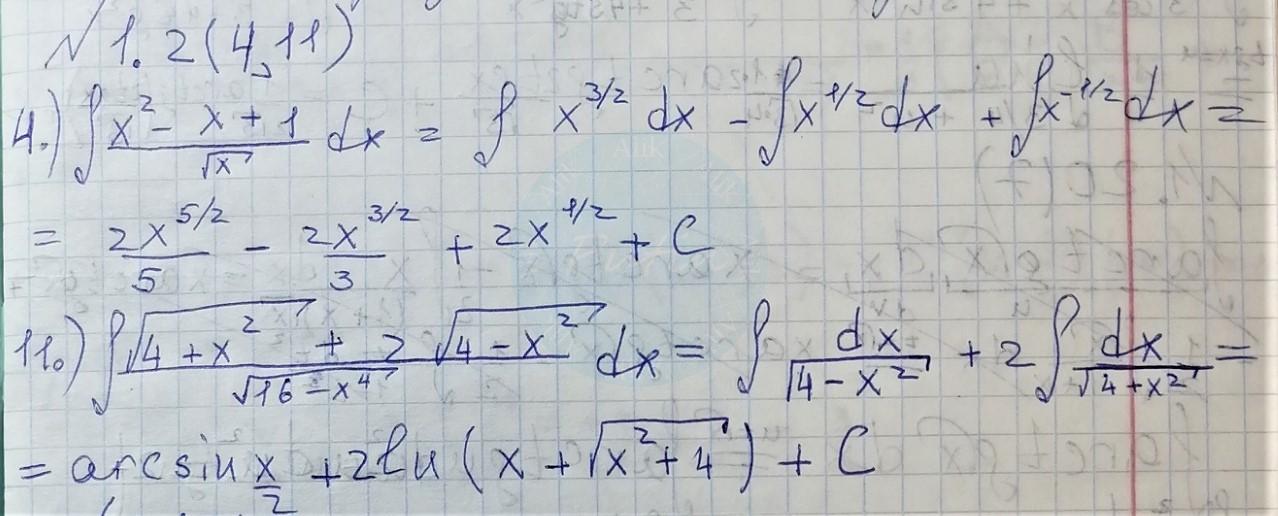 √ 1. 2 (4,11)
4.) ∫ (x² - x + 1)/√x dx = ∫ x^{3/2} dx - ∫ x^{1/2} dx + ∫ x^{-1/2} dx =
= 2x^{5/2}/5 - 2x^{3/2}/3 + 2x^{1/2} + C
11.) ∫ (√(4 + x²) + 2 √(4 - x²))/√(16 - x⁴) dx = ∫ dx/√(4 - x²) + 2 ∫ dx/√(4 + x²) =
= arcsin x/2 + 2 ln (x + √(x² + 4)) + C